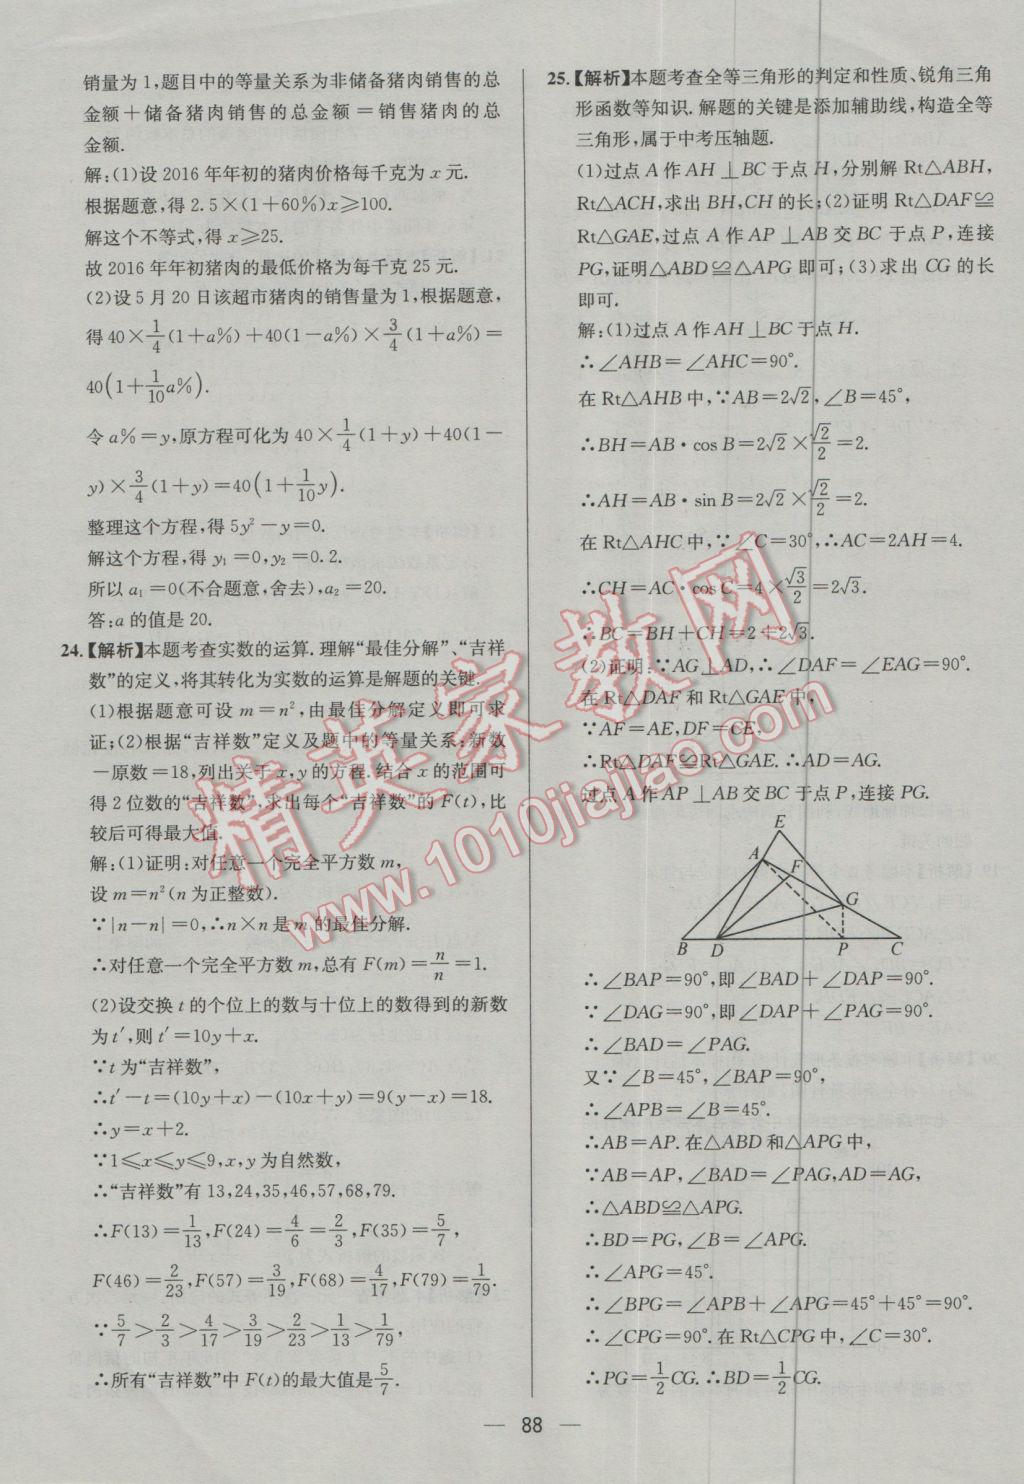 销量为1,题目中的等量关系为非储备猪肉销售的总
金额＋储备猪肉销售的总金额＝销售猪肉的总
金额.
解:(1)设2016年年初的猪肉价格每千克为x元.
根据题意,得2.5×(1+60%)x⩾100.
解这个不等式,得x⩾25.
故2016年年初猪肉的最低价格为每千克25元.
(2)设5月20日该超市猪肉的销售量为1,根据题意,
得40×1/4(1+a%)+40(1-a%)×3/4(1+a%)=
40(1+1/10a%).
令a%=y,原方程可化为40×1/4(1+y)+40(1-
y)×3/4(1+y)=40(1+1/10y).
整理这个方程,得5y²-y=0.
解这个方程,得y₁=0,y₂=0.2.
所以a₁=0(不合题意,舍去),a₂=20.
答:a的值是20.
24.【解析】本题考查实数的运算.理解“最佳分解”、“吉祥
数”的定义,将其转化为实数的运算是解题的关键.
(1)根据题意可设m=n²,由最佳分解定义即可求
证;(2)根据“吉祥数”定义及题中的等量关系:新数
-原数=18,列出关于x,y的方程.结合x的范围可
得2位数的“吉祥数”,求出每个“吉祥数”的F(t),比
较后可得最大值.
解:(1)证明:对任意一个完全平方数m,
设m=n²(n为正整数).
∵|n-n|=0,∴n×n是m的最佳分解.
∴对任意一个完全平方数m,总有F(m)=n/n=1.
(2)设交换t的个位上的数与十位上的数得到的新数
为t′,则t′=10y+x.
∵t为“吉祥数”,
∴t′-t=(10y+x)-(10x+y)=9(y-x)=18.
∴y=x+2.
∵1⩽x⩽y⩽9,x,y为自然数,
∴“吉祥数”有13,24,35,46,57,68,79.
∴F(13)=1/13,F(24)=4/6=2/3,F(35)=5/7,
F(46)=2/23,F(57)=3/19,F(68)=4/17,F(79)=1/79.
∵5/7>2/3>4/17>3/19>2/23>1/13>1/79,
∴所有“吉祥数”中F(t)的最大值是5/7.
25.【解析】本题考查全等三角形的判定和性质、锐角三角
形函数等知识.解题的关键是添加辅助线,构造全等
三角形,属于中考压轴题.
(1)过点A作AH⊥BC于点H,分别解Rt△ABH,
Rt△ACH,求出BH,CH的长;(2)证明Rt△DAF≌
Rt△GAE,过点A作AP⊥AB交BC于点P,连接
PG,证明△ABD≌△APG即可;(3)求出CG的长
即可.
解:(1)过点A作AH⊥BC于点H.
∴∠AHB=∠AHC=90°.
在Rt△AHB中,∵AB=2√2,∠B=45°,
∴BH=AB·cos B=2√2×√2/2=2.
∴AH=AB·sin B=2√2×√2/2=2.
在Rt△AHC中,∵∠C=30°,∴AC=2AH=4.
∴CH=AC·cos C=4×√3/2=2√3.
∴BC=BH+CH=2+2√3.
(2)证明:∵AG⊥AD,∴∠DAF=∠EAG=90°.
在Rt△DAF和Rt△GAE中,
∵AF=AE,DF=CE,
∴Rt△DAF≌Rt△GAE.∴AD=AG.
过点A作AP⊥AB交BC于点P,连接PG.
E
A
F
G
B D P C
∴∠BAP=90°,即∠BAD+∠DAP=90°.
∵∠DAG=90°,即∠DAP+∠PAG=90°.
∴∠BAD=∠PAG.
又∵∠B=45°,∠BAP=90°,
∴∠APB=∠B=45°.
∴AB=AP.在△ABD和△APG中,
∵AB=AP,∠BAD=∠PAG,AD=AG,
∴△ABD≌△APG.
∴BD=PG,∠B=∠APG.
∴∠APG=45°.
∴∠BPG=∠APB+∠APG=45°+45°=90°.
∴∠CPG=90°.在Rt△CPG中,∠C=30°.
∴PG=1/2CG.∴BD=1/2CG.
— 88 —
精英家教网
www.1010jiajiao.com